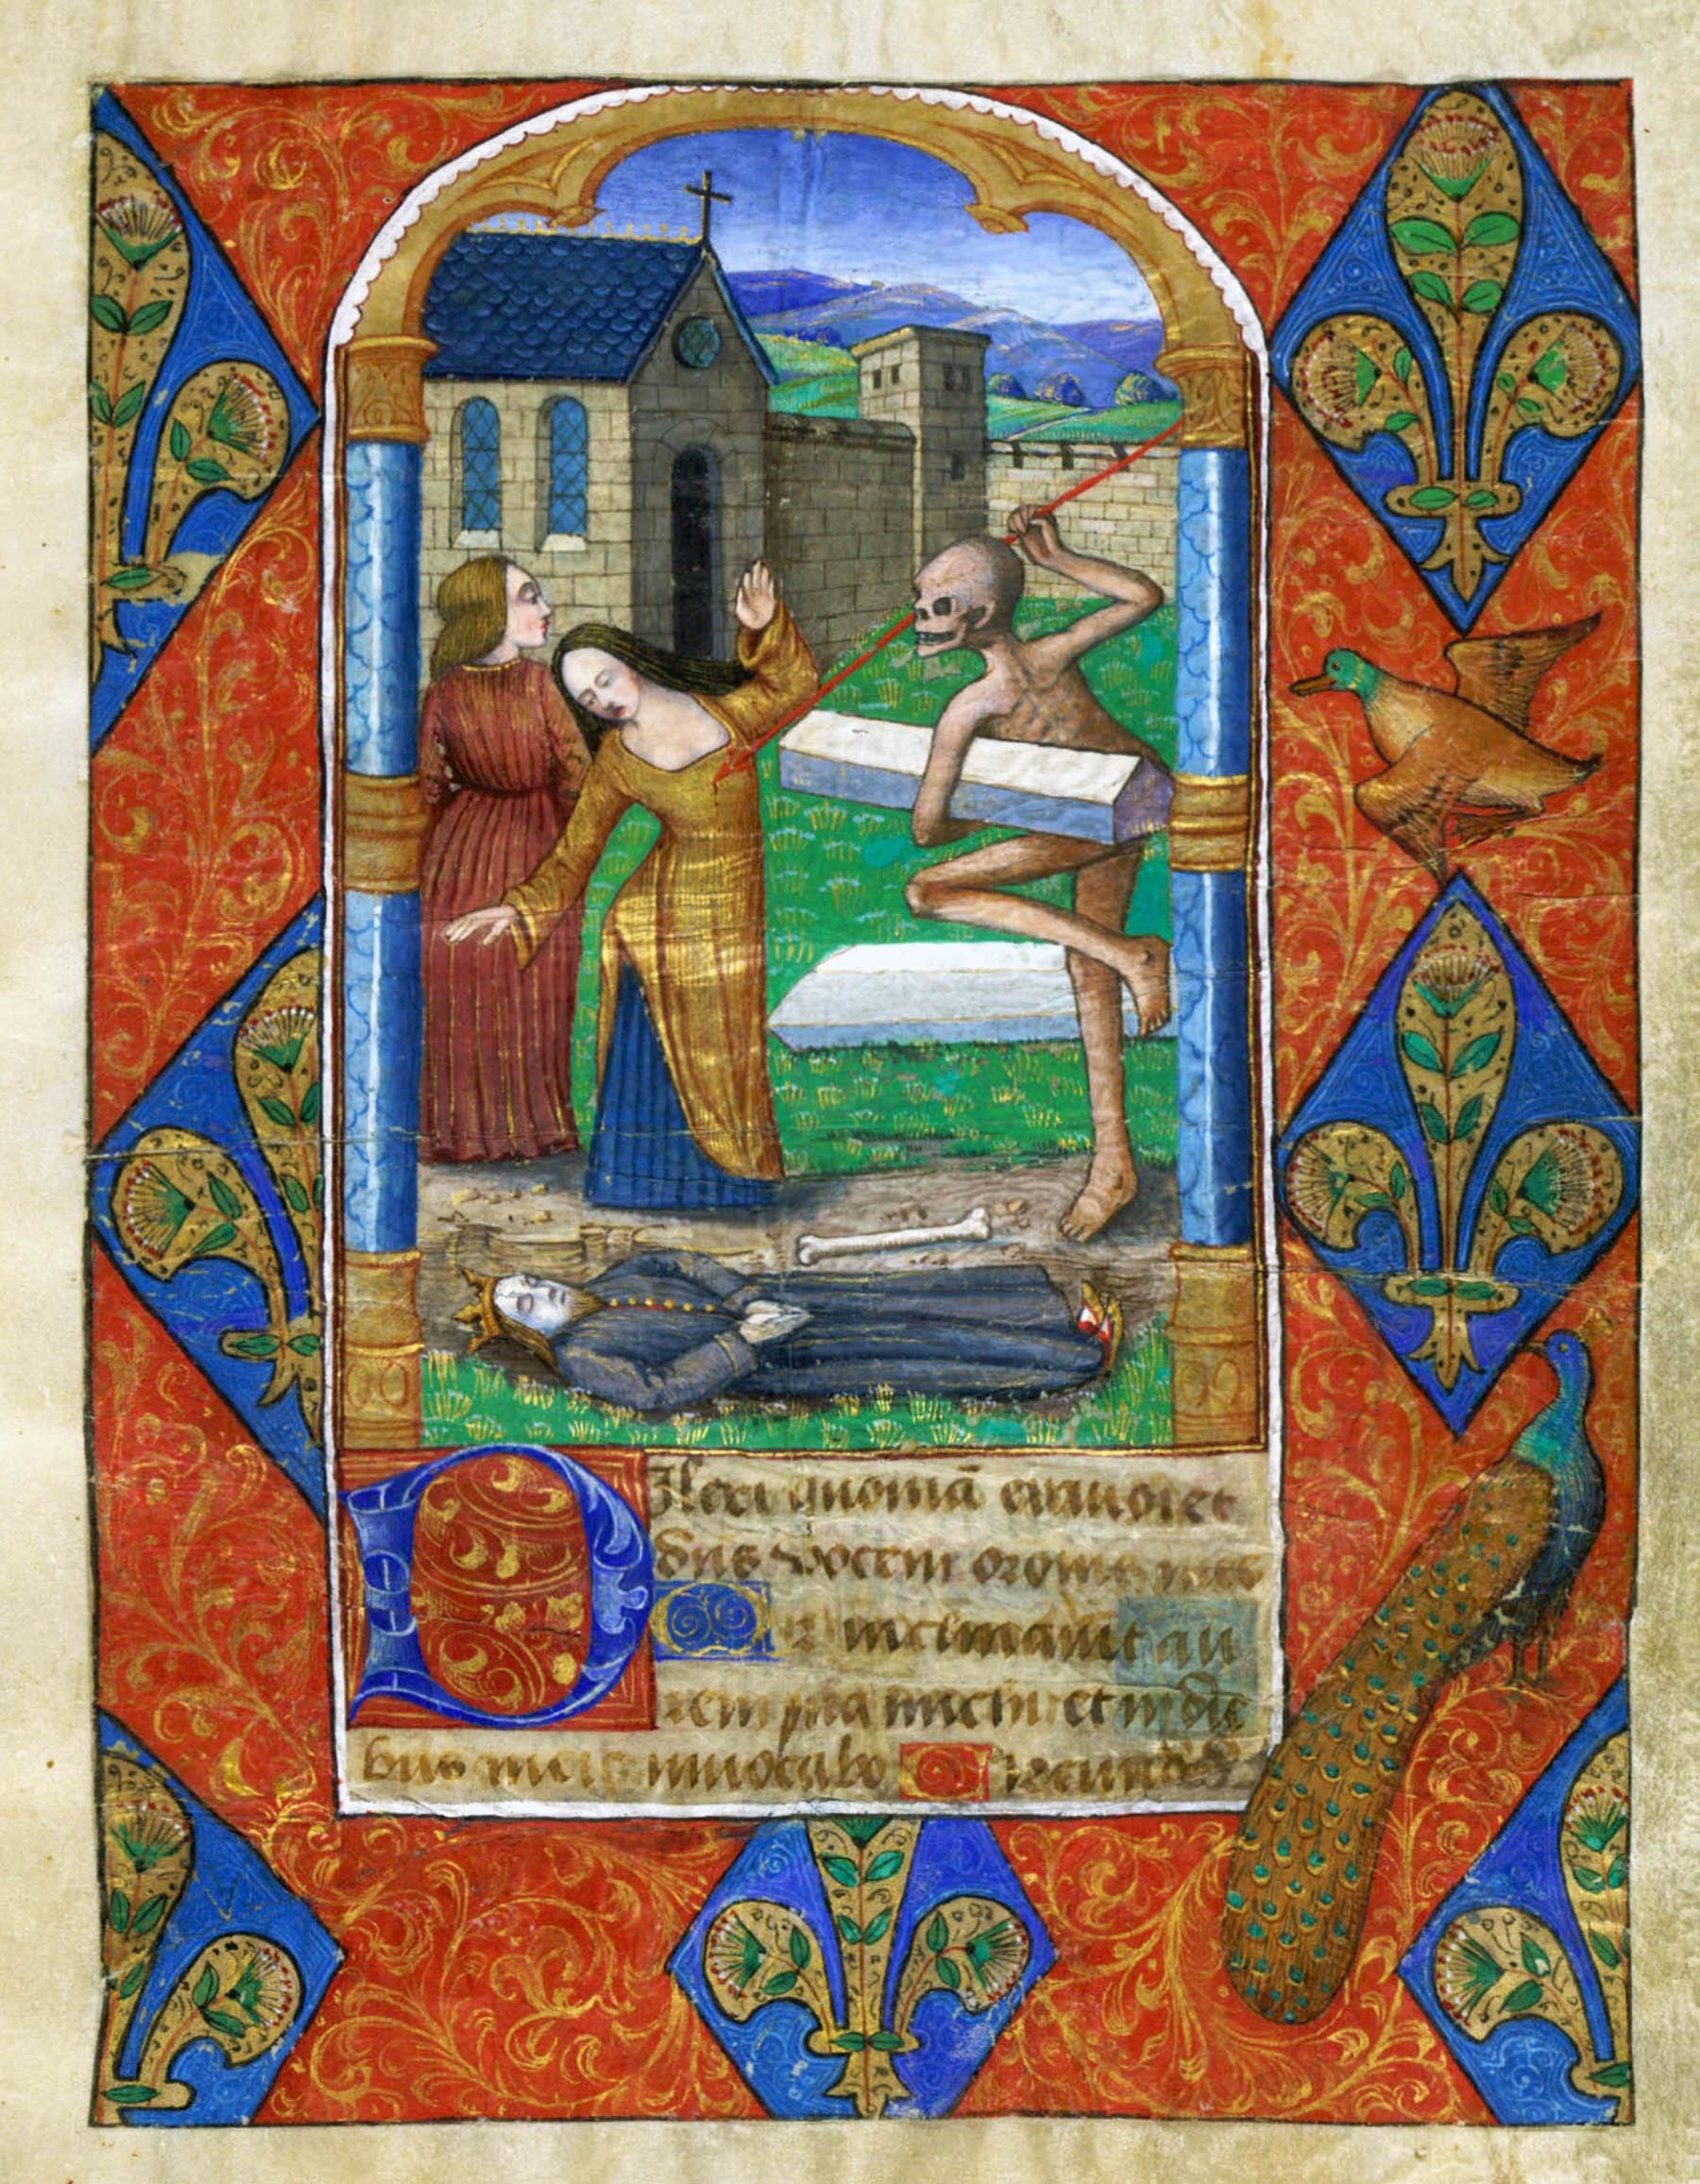 Dilexi quoniā exaudiet
dn̄s vocem orōnis mee
Quia inclinavit au
rem suā michi et in die
bus meis invocabo Circundede